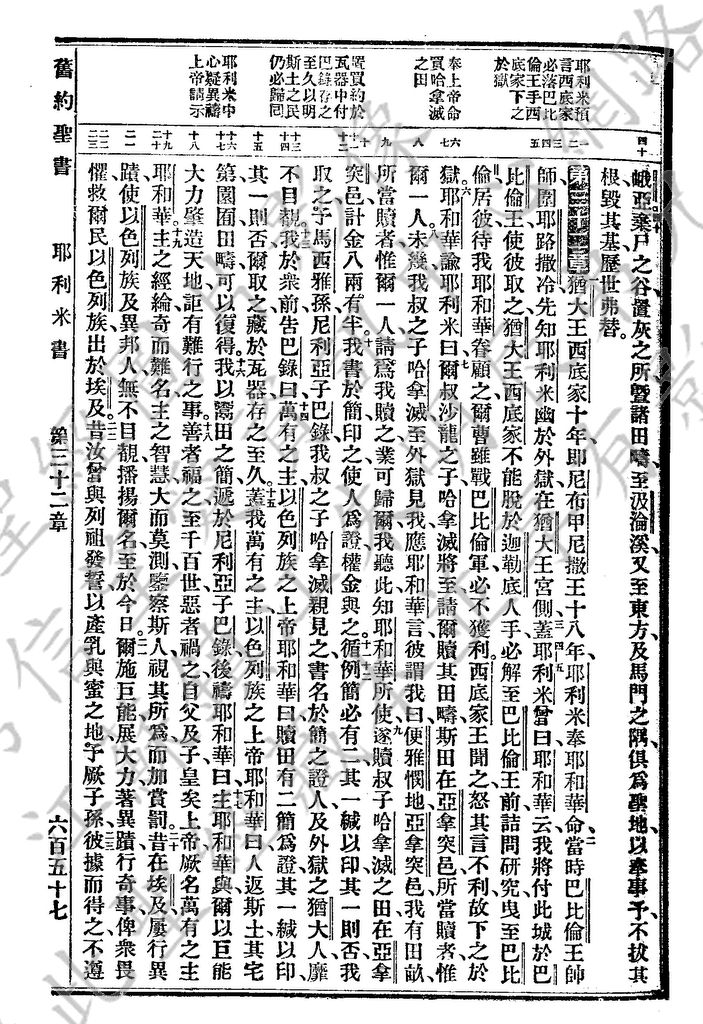 耶利米預
言西底家
必落巴比
倫王手西
底家下之
於獄
奉上帝命
買哈拿滅
之田
置買約於
瓦器中付
巴錄存之
至久以明
斯土之民
仍必歸同
耶利米中
心疑異禱
上帝請示
四十
一二
三
四
五
六
七
八
九
十
十二
十三
十四
十五
十六
十七
十八
十九
二十
二一
二二
二三
峨亞棄尸之谷置灰之所暨諸田疇至汲淪溪又至東方及馬門之隅俱爲聖地以奉事予不拔其
根毀其基歷世弗替。
第三十二章 猶大王西底家十年即尼布甲尼撒王十八年耶利米奉耶和華命當時巴比倫王帥
師圍耶路撒冷先知耶利米幽於外獄在猶大王宮側蓋耶利米曾曰耶和華云我將付此城於巴
比倫王使彼取之猶大王西底家不能脫於迦勒底人手必解至巴比倫王前詰問研究曳至巴比
倫居彼待我耶和華眷顧之爾曹雖戰巴比倫軍必不獲利西底家王聞之怒其言不利故下之於
獄耶和華諭耶利米曰爾叔沙龍之子哈拿滅將至請爾贖其田疇斯田在亞拿突邑所當贖者惟
爾一人未幾我叔之子哈拿滅至外獄見我應耶和華言彼謂我曰便雅憫地亞拿突邑我有田畝
所當贖者惟爾一人請爲我贖之業可歸爾我聽此知耶和華所使遂贖叔子哈拿滅之田在亞拿
突邑計金八兩有半我書於簡印之使人爲證權金與之循例簡必有二其一緘以印其一則否我
取之予馬西雅孫尼利亞子巴錄我叔之子哈拿滅親見之書名於簡之證人及外獄之猶大人靡
不目覩我於衆前告巴錄曰萬有之主以色列族之上帝耶和華曰贖田有二簡爲證其一緘以印
其一則否爾取之藏於瓦器存之至久蓋我萬有之主以色列族之上帝耶和華曰人返斯土其宅
第園囿田疇可以復得我以鬻田之簡遞於尼利亞子巴錄後禱耶和華曰主耶和華與爾以巨能
大力肇造天地詎有難行之事善者福之至千百世惡者禍之自父及子皇矣上帝厥名萬有之主
耶和華主之經綸奇而難名主之智慧大而莫測鑒察斯人視其所爲而加賞罰昔在埃及屢行異
蹟使以色列族及異邦人無不目覩播揚爾名至於今日爾施巨能展大力著異蹟行奇事俾衆畏
懼救爾民以色列族出於埃及昔汝曾與列祖發誓以產乳與蜜之地予厥子孫彼據而得之不遵
舊約聖書 耶利米書 第三十二章 六百五十七